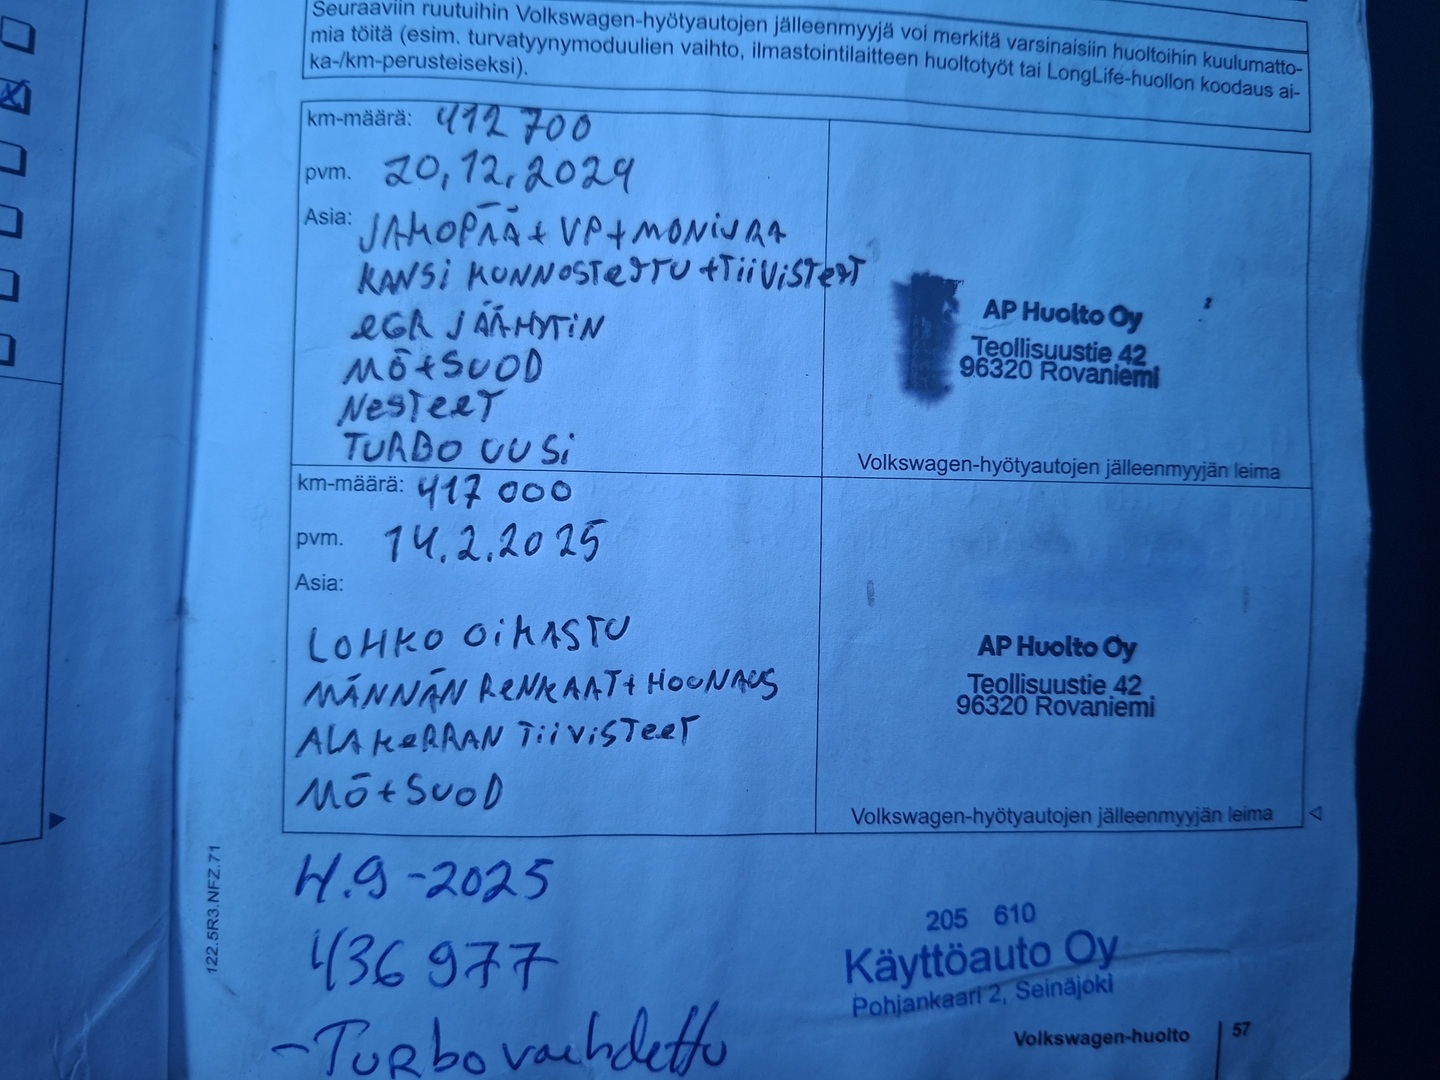 Seuraaviin ruutuihin Volkswagen-hyötyautojen jälleenmyyjä voi merkitä varsinaisiin huoltoihin kuulumatto-
mia töitä (esim. turvatyynymoduulien vaihto, ilmastointilaitteen huoltotyöt tai LongLife-huollon koodaus ai-
ka-/km-perusteiseksi).
km-määrä: 412 700
pvm. 20,12,2024
Asia: JAKOPÄÄ + VP + MONIURA
KANSI KUNNOSTETTU + TiiViSTEET
EGR JÄÄHYTIN
MÖ+SUOD
NESTEET
TURBO UUSi
AP Huolto Oy
Teollisuustie 42
96320 Rovaniemi
Volkswagen-hyötyautojen jälleenmyyjän leima
km-määrä: 417 000
pvm. 14.2.2025
Asia:
LOHKO OiKASTU
MÄNNÄN RENKAAT + HOONAUS
ALAKERRAN TiiViSTEET
MÖ+SUOD
AP Huolto Oy
Teollisuustie 42
96320 Rovaniemi
Volkswagen-hyötyautojen jälleenmyyjän leima
4.9-2025
436 977
- Turbo vaihdettu
205 610
Käyttöauto Oy
Pohjankaari 2, Seinäjoki
122.5R3.NFZ.71
Volkswagen-huolto 57